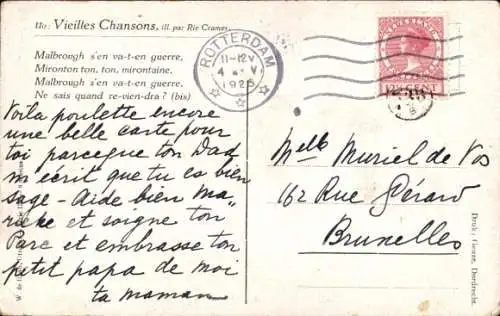 110: Vieilles Chansons, ill. par Rie Cramer.
Malbrough s'en va-t-en guerre,
Mironton ton, ton, mirontaine,
Malbrough s'en va-t-en guerre,
Ne sais quand re-vien-dra? (bis)
Voila poulette encore
une belle carte pour
toi parceque ton Dad
m'écrit que tu es bien
sage - Aide bien Ma-
rieke et soigne ton
Parc et embrasse ton
petit papa de moi
ta maman
ROTTERDAM
11-12V
4 V
1925
Melle Muriel de Vos
162 Rue Gérard
Bruxelles
Druk: Geuze, Dordrecht.